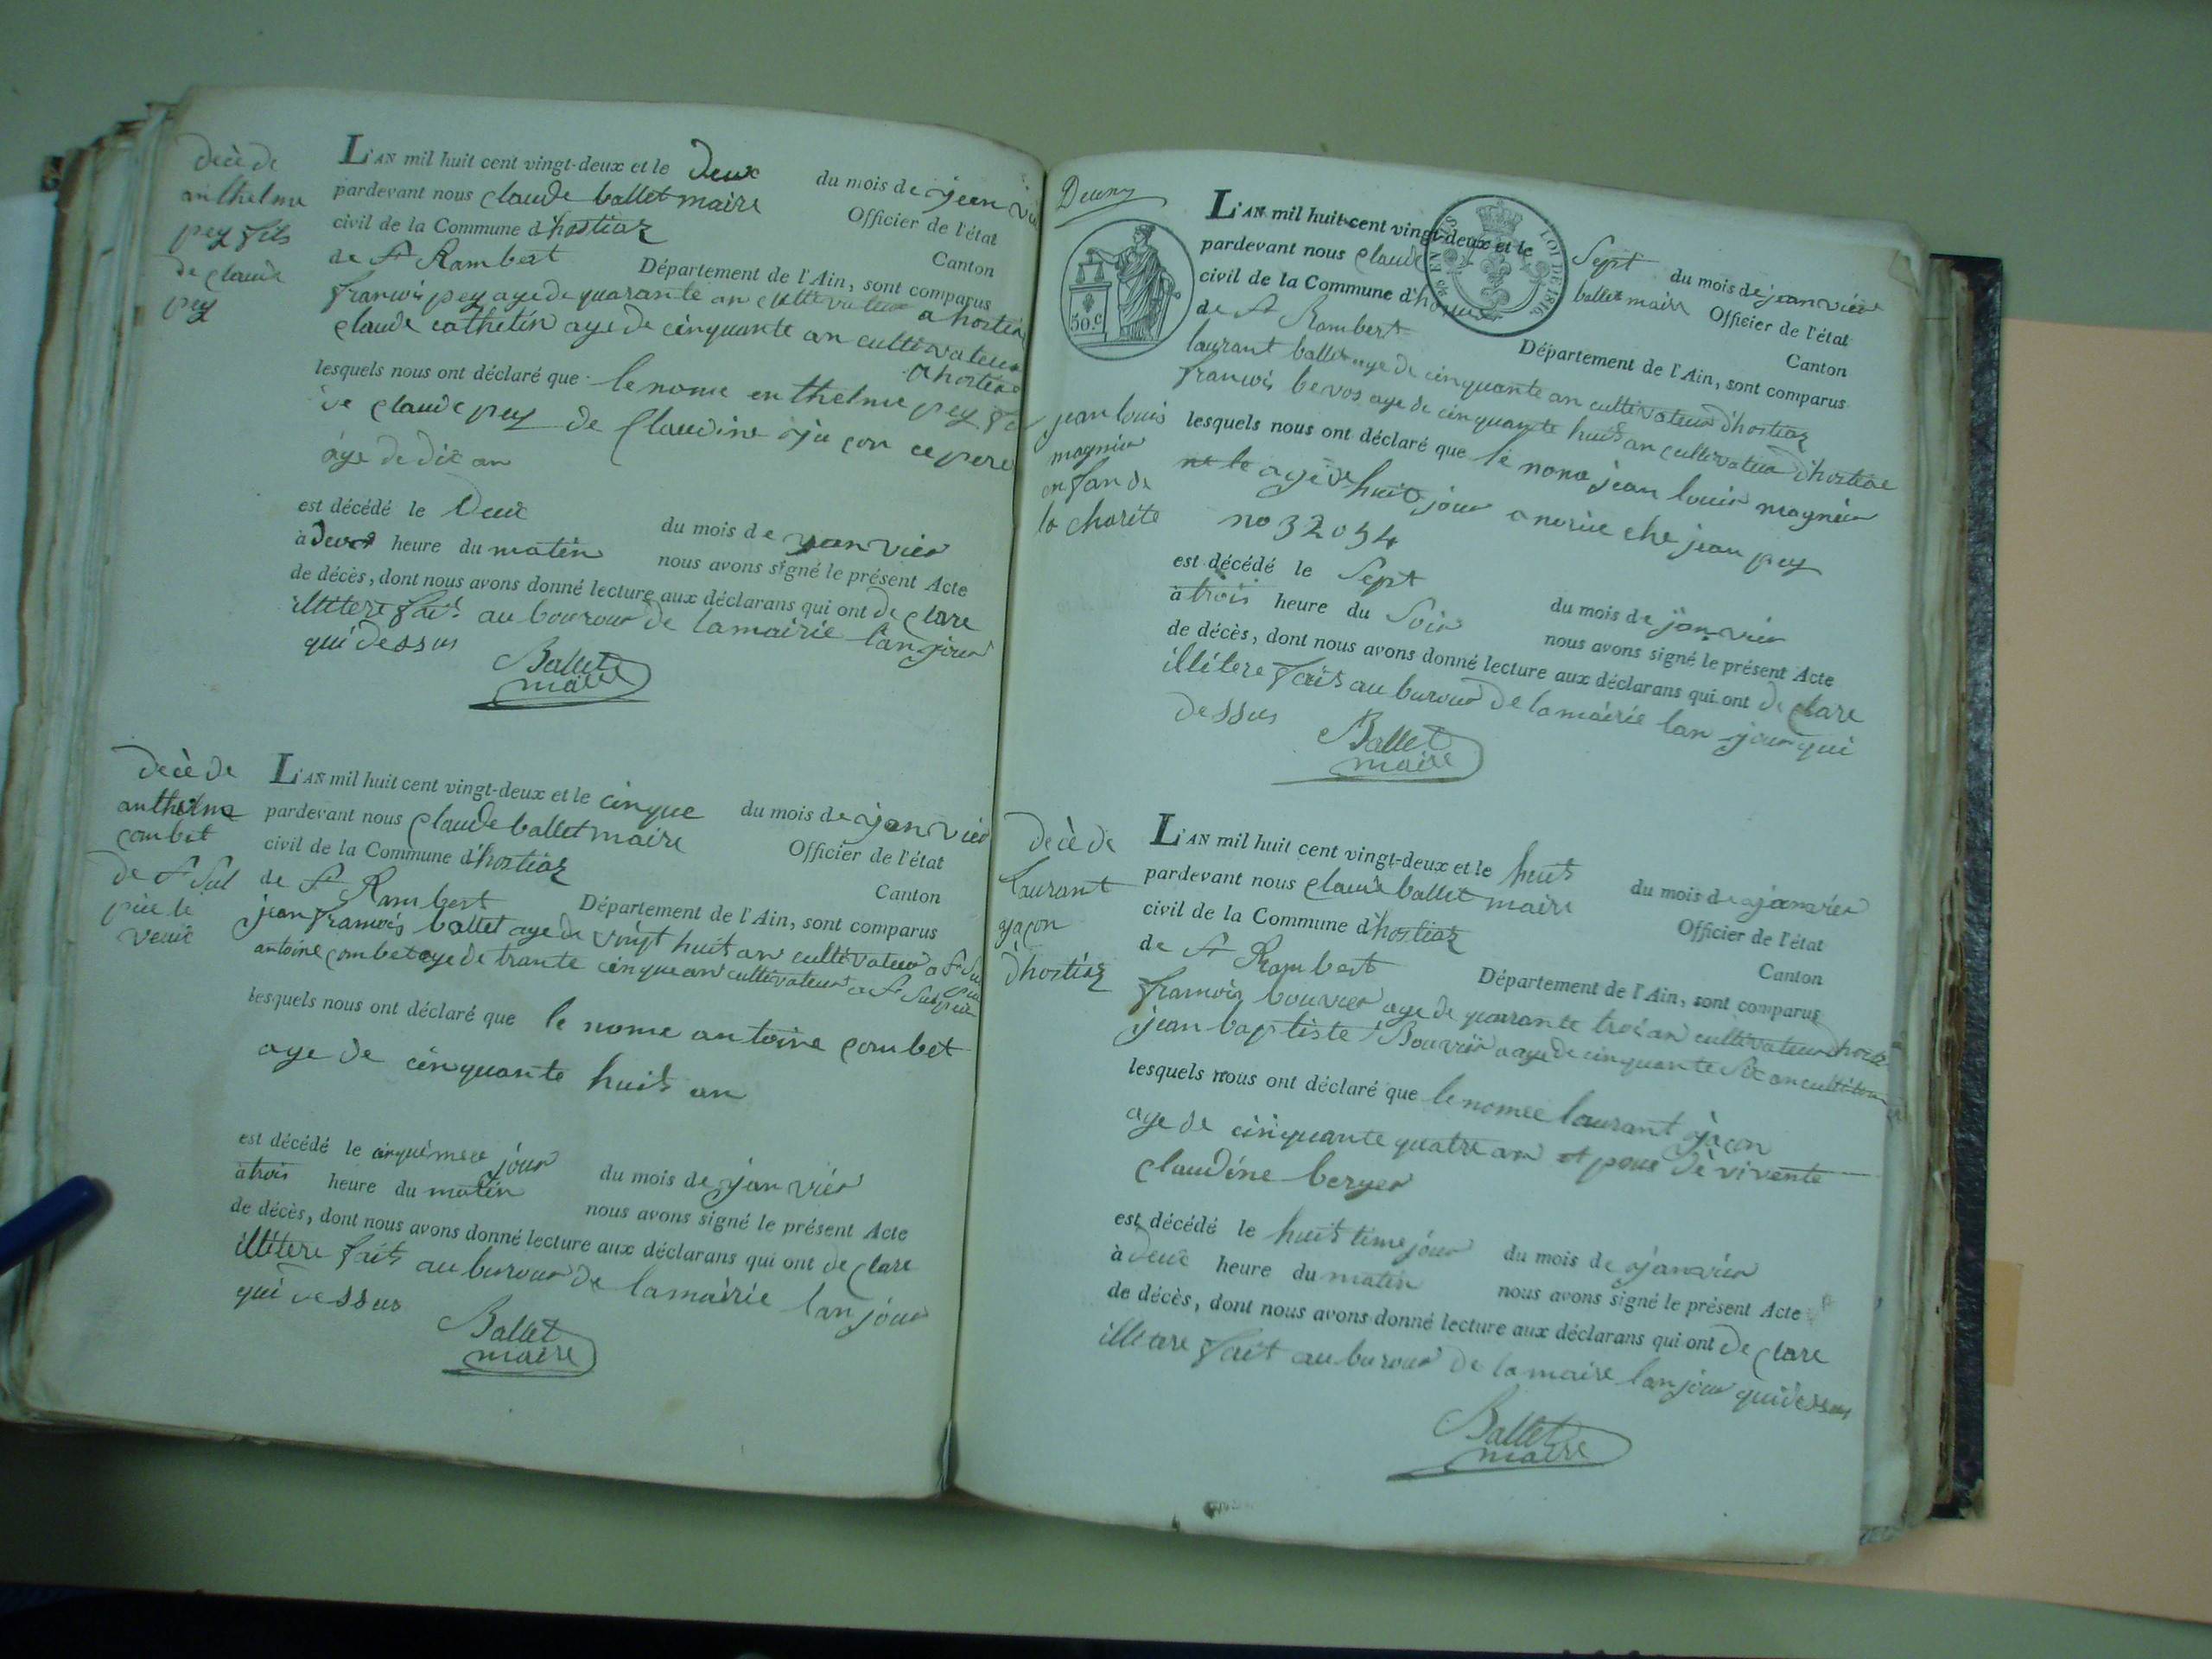 decè de
anthelme
pey fils
de claude
pey
L'AN mil huit cent vingt-deux et le deux du mois de
pardevant nous claude ballet maire Officier de l'état
civil de la Commune d'hostiaz Canton
de St Rambert Département de l'Ain, sont comparus
francois pey age de quarante an cultivateur a hostiaz
claude cathelin age de cinquante an cultivateur
a hostiaz
lesquels nous ont déclaré que le nome enthelme pey
de claude pey de Claudine ce pere
age de dix an
est décédé le deux du mois de janvier
à deux heure du matin nous avons signé le présent Acte
de décès, dont nous avons donné lecture aux déclarans qui ont de clare
illitere fait au de la mairie lan jour
qui dessus
Ballet
maire
decè de
anthelme
combet
de St Sul
pice le
L'AN mil huit cent vingt-deux et le cinque du mois de janvier
pardevant nous claude ballet maire Officier de l'état
civil de la Commune d'hostiaz Canton
de St Rambert Département de l'Ain, sont comparus
jean francois ballet age de vingt huit an cultivateur a St Sul
pice
antoine combet age de trante cinque an cultivateur a St Sulpice
lesquels nous ont déclaré que le nome antoine combet
age de cinquante huit an
est décédé le jour du mois de janvier
à trois heure du matin nous avons signé le présent Acte
de décès, dont nous avons donné lecture aux déclarans qui ont de clare
illitere fait au burour de la mairie lan jour
qui dessus
Ballet
maire
Deuxy
50.C
EN SUS
LOI DE 1816
L'AN mil huit cent vingt-deux et le Sept du mois de janvier
pardevant nous claude ballet maire Officier de l'état
civil de la Commune d'hostiaz Canton
de St Rambert Département de l'Ain, sont comparus
laurant ballet age de cinquante an cultivateur d'hostiaz
francois bevos age de cinquante huit an cultivateur d'hostiaz
jean louis
magnin
enfan de
la charite
lesquels nous ont déclaré que le nome jean louis magnin
age de huit jour che jean pey
no 32054
est décédé le Sept du mois de janvier
à trois heure du Soir nous avons signé le présent Acte
de décès, dont nous avons donné lecture aux déclarans qui ont de clare
illitere fait au burour de la mairie lan jour qui
dessus
Ballet
maire
decè de
laurant
d'hostiaz
L'AN mil huit cent vingt-deux et le huit du mois de janvier
pardevant nous claude ballet maire Officier de l'état
civil de la Commune d'hostiaz Canton
de St Rambert Département de l'Ain, sont comparus
francois bouvier age de quarante troi an cultivateur
jean baptiste Bouvier age de cinquante Six an
lesquels nous ont déclaré que le nomee laurant
age de cinquante quatre an et vivente
claudine berger
est décédé le huit time jour du mois de janvier
à deux heure du matin nous avons signé le présent Acte
de décès, dont nous avons donné lecture aux déclarans qui ont de clare
illitere fait au burour de la maire lan jour qui dessus
Ballet
maire